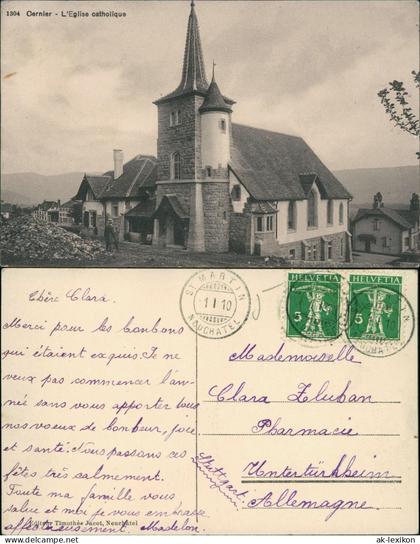 1304 Cernier - L'Eglise catholique
Chère Clara.
Merci pour les bonbons
qui étaient exquis. Je ne
veux pas commencer l'an-
née sans vous apporter tous
nos voeux de bonheur, joie
et santé. Nous passons ces
fêtes très calmement.
Toute ma famille vous
salue et moi je vous embrasse
affectueusement. Madelon.
Editeur Timothée Jacot, Neuchâtel
ST MARTIN
-1.I.10
NEUCHATEL
HELVETIA
5
HELVETIA
5
Mademoiselle
Clara Zluban
Pharmacie
Untertürkheim
Stuttgart
Allemagne.
© ak-lexikon